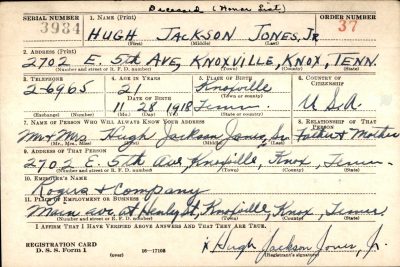 Deceased (Honor List)
SERIAL NUMBER 1. NAME (Print) ORDER NUMBER
3984 HUGH JACKSON JONES, JR 37
(First) (Middle) (Last)
2. ADDRESS (Print)
2702 E. 5th AVE, KNOXVILLE, KNOX, TENN.
(Number and street or R. F. D. number) (Town) (County) (State)
3. TELEPHONE 4. AGE IN YEARS 5. PLACE OF BIRTH 6. COUNTRY OF CITIZENSHIP
2-6965 21 Knoxville
DATE OF BIRTH (Town or county)
11 28 1918 Tenn. U.S.A
(Mo.) (Day) (Yr.) (State or country)
7. NAME OF PERSON WHO WILL ALWAYS KNOW YOUR ADDRESS 8. RELATIONSHIP OF THAT PERSON
Mr + Mrs Hugh Jackson Jones, Sr. Father + Mother
(Mr., Mrs., Miss) (First) (Middle) (Last)
9. ADDRESS OF THAT PERSON
2702 E. 5th Ave, Knoxville, Knox, Tenn.
(Number and street or R. F. D. number) (Town) (County) (State)
10. EMPLOYER'S NAME
Rogers + Company
11. PLACE OF EMPLOYMENT OR BUSINESS
Main ave. at Henley St, Knoxville, Knox, Tenn.
(Number and street or R. F. D. number) (Town) (County) (State)
I AFFIRM THAT I HAVE VERIFIED ABOVE ANSWERS AND THAT THEY ARE TRUE.
REGISTRATION CARD
D. S. S. Form 1 (over) 16—17105
x Hugh Jackson Jones, Jr.
(Registrant's signature)